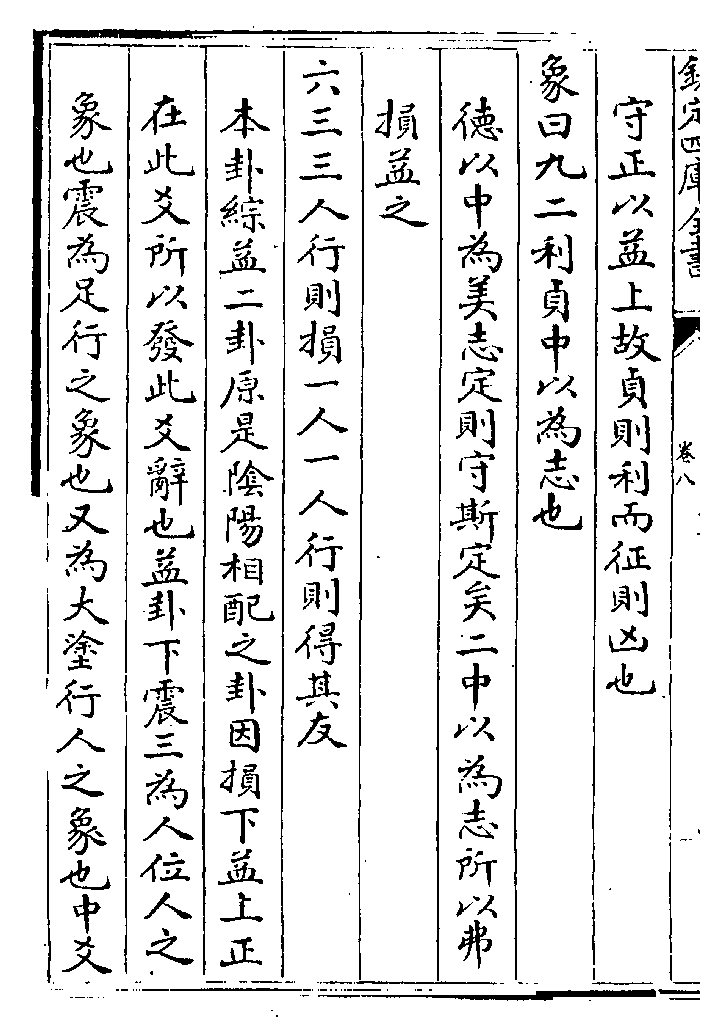 欽定四庫全書
卷八
守正以益上故貞則利而征則凶也
象曰九二利貞中以為志也
德以中為美志定則守斯定矣二中以為志所以弗
損益之
六三三人行則損一人一人行則得其友
本卦綜益二卦原是陰陽相配之卦因損下益上正
在此爻所以發此爻辭也益卦下震三為人位人之
象也震為足行之象也又為大塗行人之象也中爻